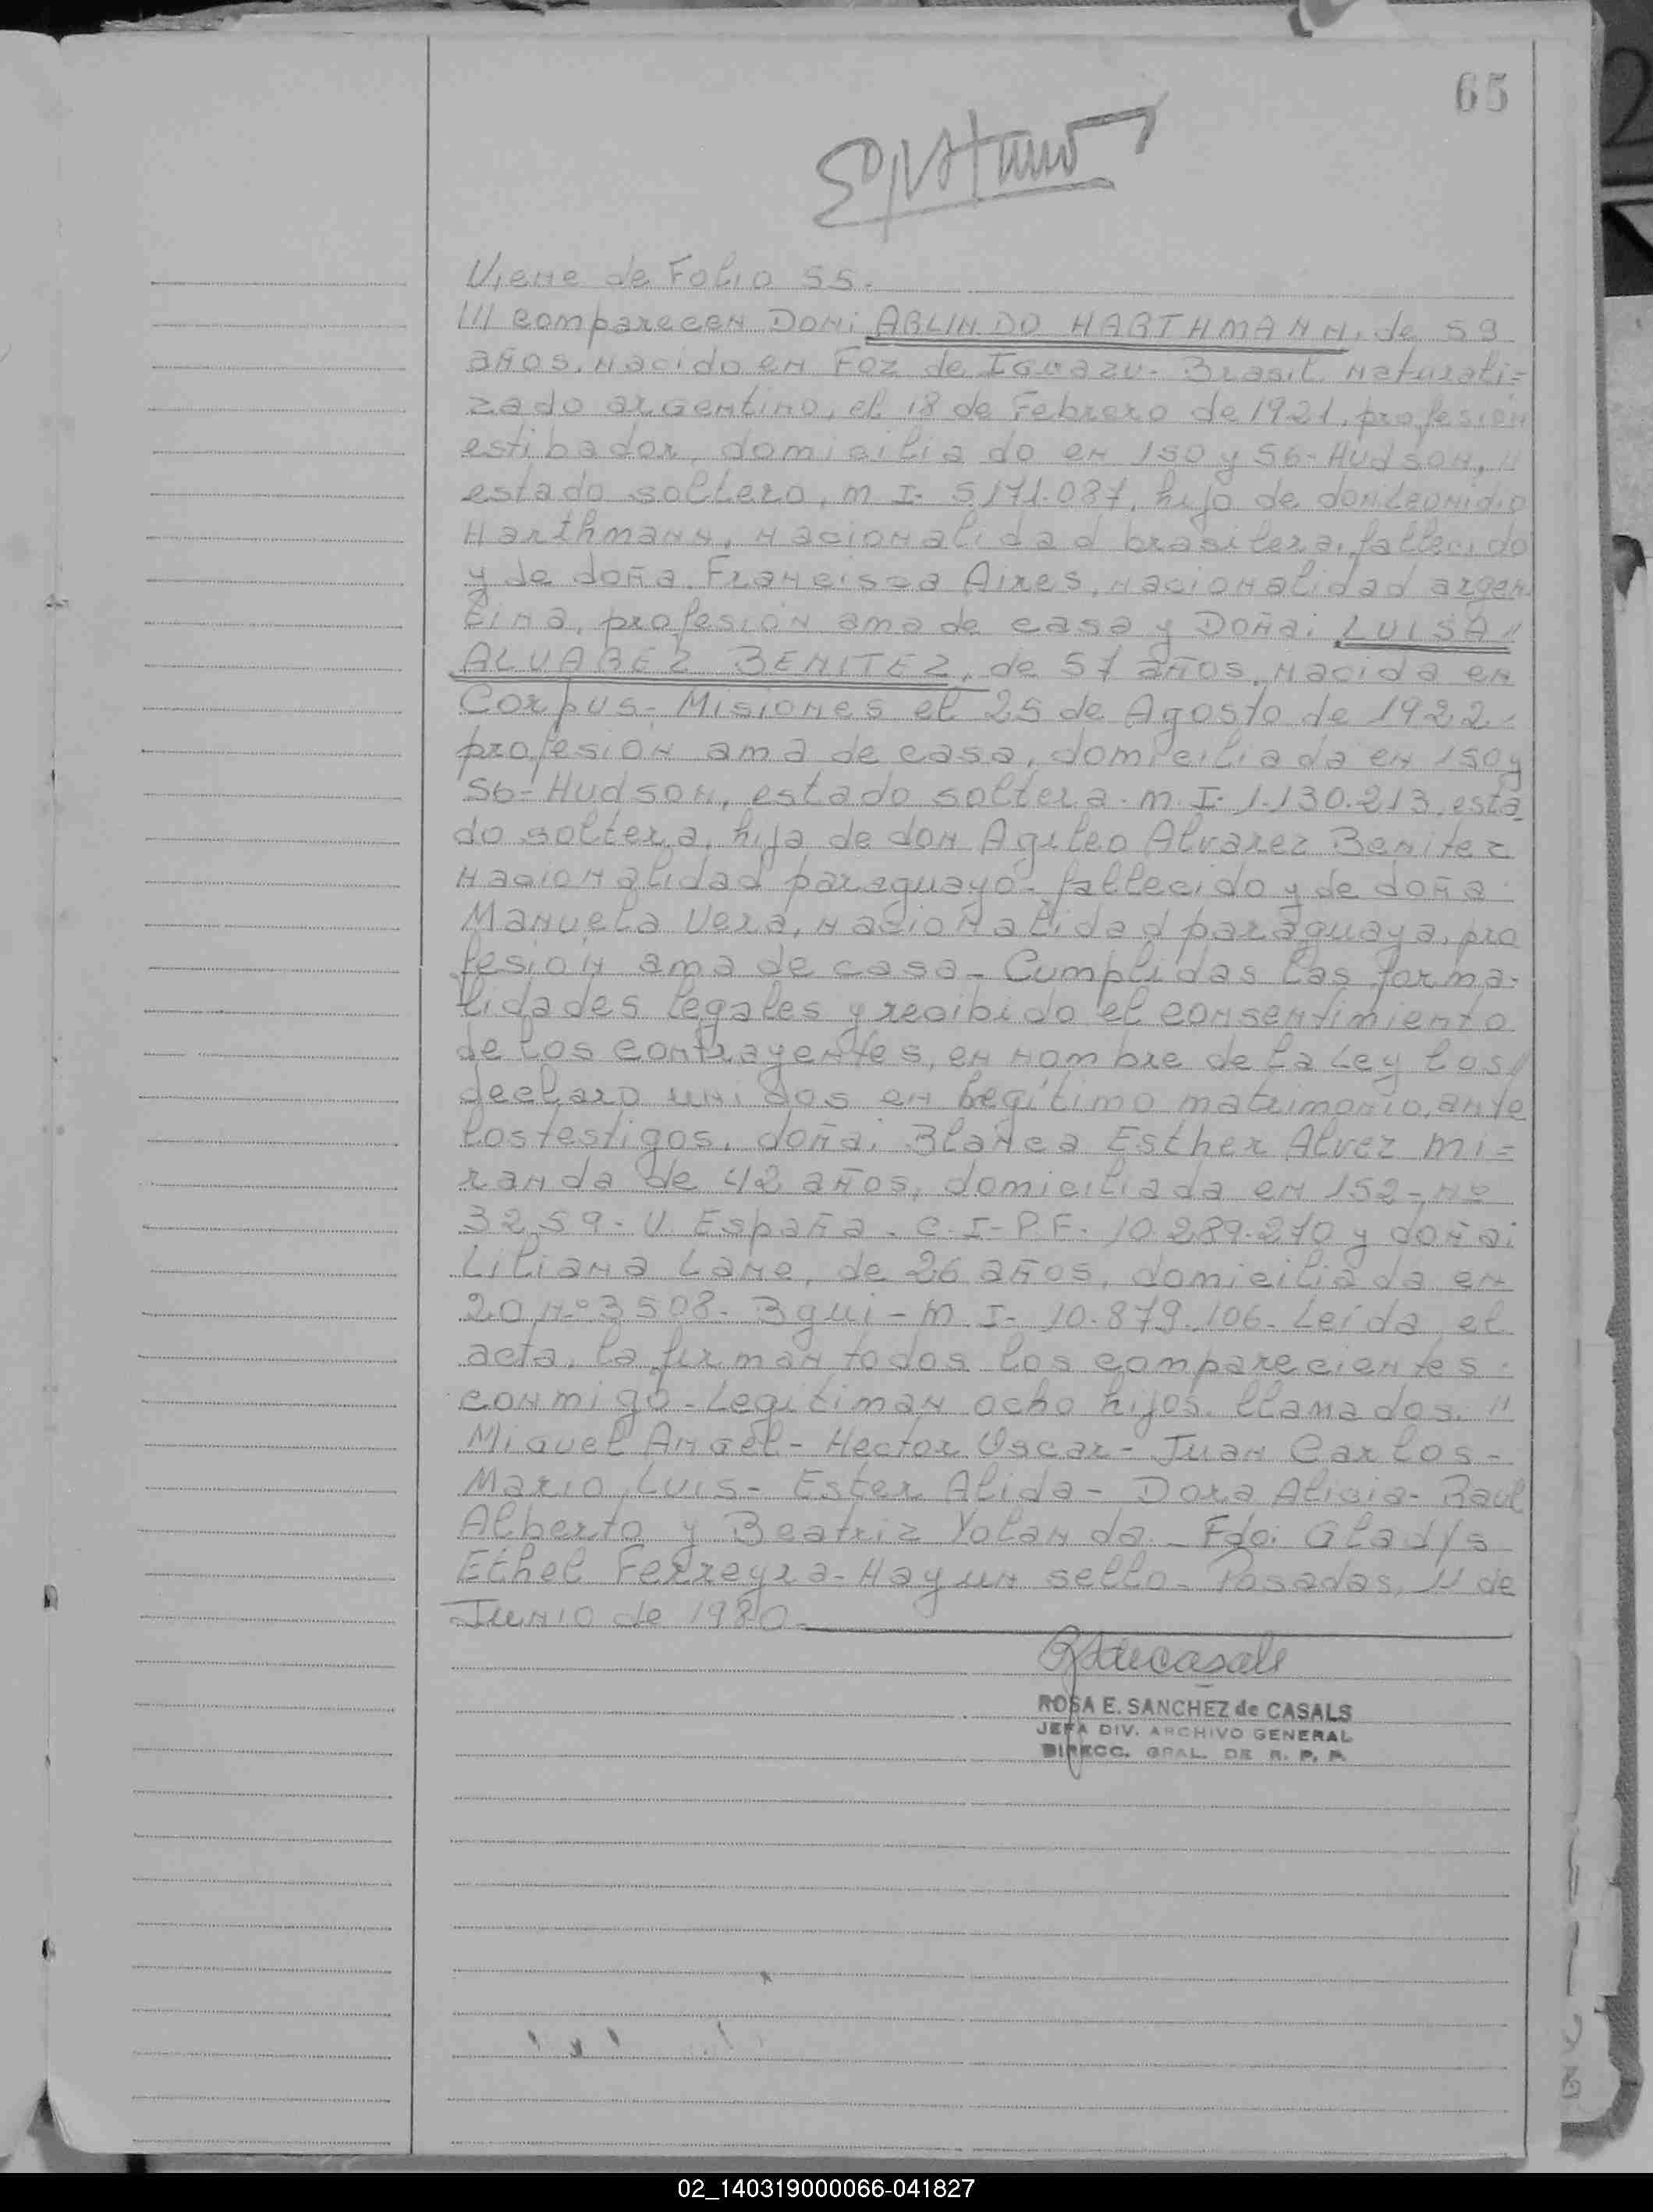 65
Viene de Folio 55.
/// comparecen Don: ARLINDO HARTHMANN, de 59
años, nacido en Foz de Iguazu - Brasil naturali=
zado argentino, el 18 de Febrero de 1921, profesión
estibador, domiciliado en 150 y 56 - Hudson, //
estado soltero, M I - 5.171.087, hijo de don Leonidio
Harthmann, nacionalidad brasilera, fallecido
y de doña Francisca Aires, nacionalidad argen
tina, profesión ama de casa y Doña: LUISA //
ALVAREZ BENITEZ, de 57 años, nacida en
Corpus - Misiones el 25 de Agosto de 1922 -
profesión ama de casa, domiciliada en 150 y
56 - Hudson, estado soltera - M. I - 1.130.213, esta
do soltera, hija de don Agileo Alvarez Benitez
nacionalidad paraguayo - fallecido y de doña
Manuela Vera, nacionalidad paraguaya, pro
fesión ama de casa - Cumplidas las forma-
lidades legales y recibido el consentimiento
de los contrayentes, en nombre de la Ley los /
declaro unidos en legítimo matrimonio, ante
los testigos, doña: Blanca Esther Alvez Mi=
randa de 42 años, domiciliada en 152 - nº
3259 - V. España - C - I - P. F. 10.289.270 y doña:
Liliana Lane, de 26 años, domiciliada en
20 nº 3508 - Bgui - M. I - 10.879.106 - Leída el
acta, la firman todos los comparecientes
conmigo - Legitiman ocho hijos, llamados, //
Miguel Angel - Hector Oscar - Juan Carlos -
Mario Luis - Ester Alida - Dora Alicia - Raul
Alberto y Beatriz Yolanda - Fdo: Gladys
Ethel Ferreyra - Hay un sello - Posadas, 11 de
Junio de 1980 -
ROSA E. SANCHEZ de CASALS
JEFA DIV. ARCHIVO GENERAL
DIRECC. GRAL. DE R. P. P.
02_140319000066-041827